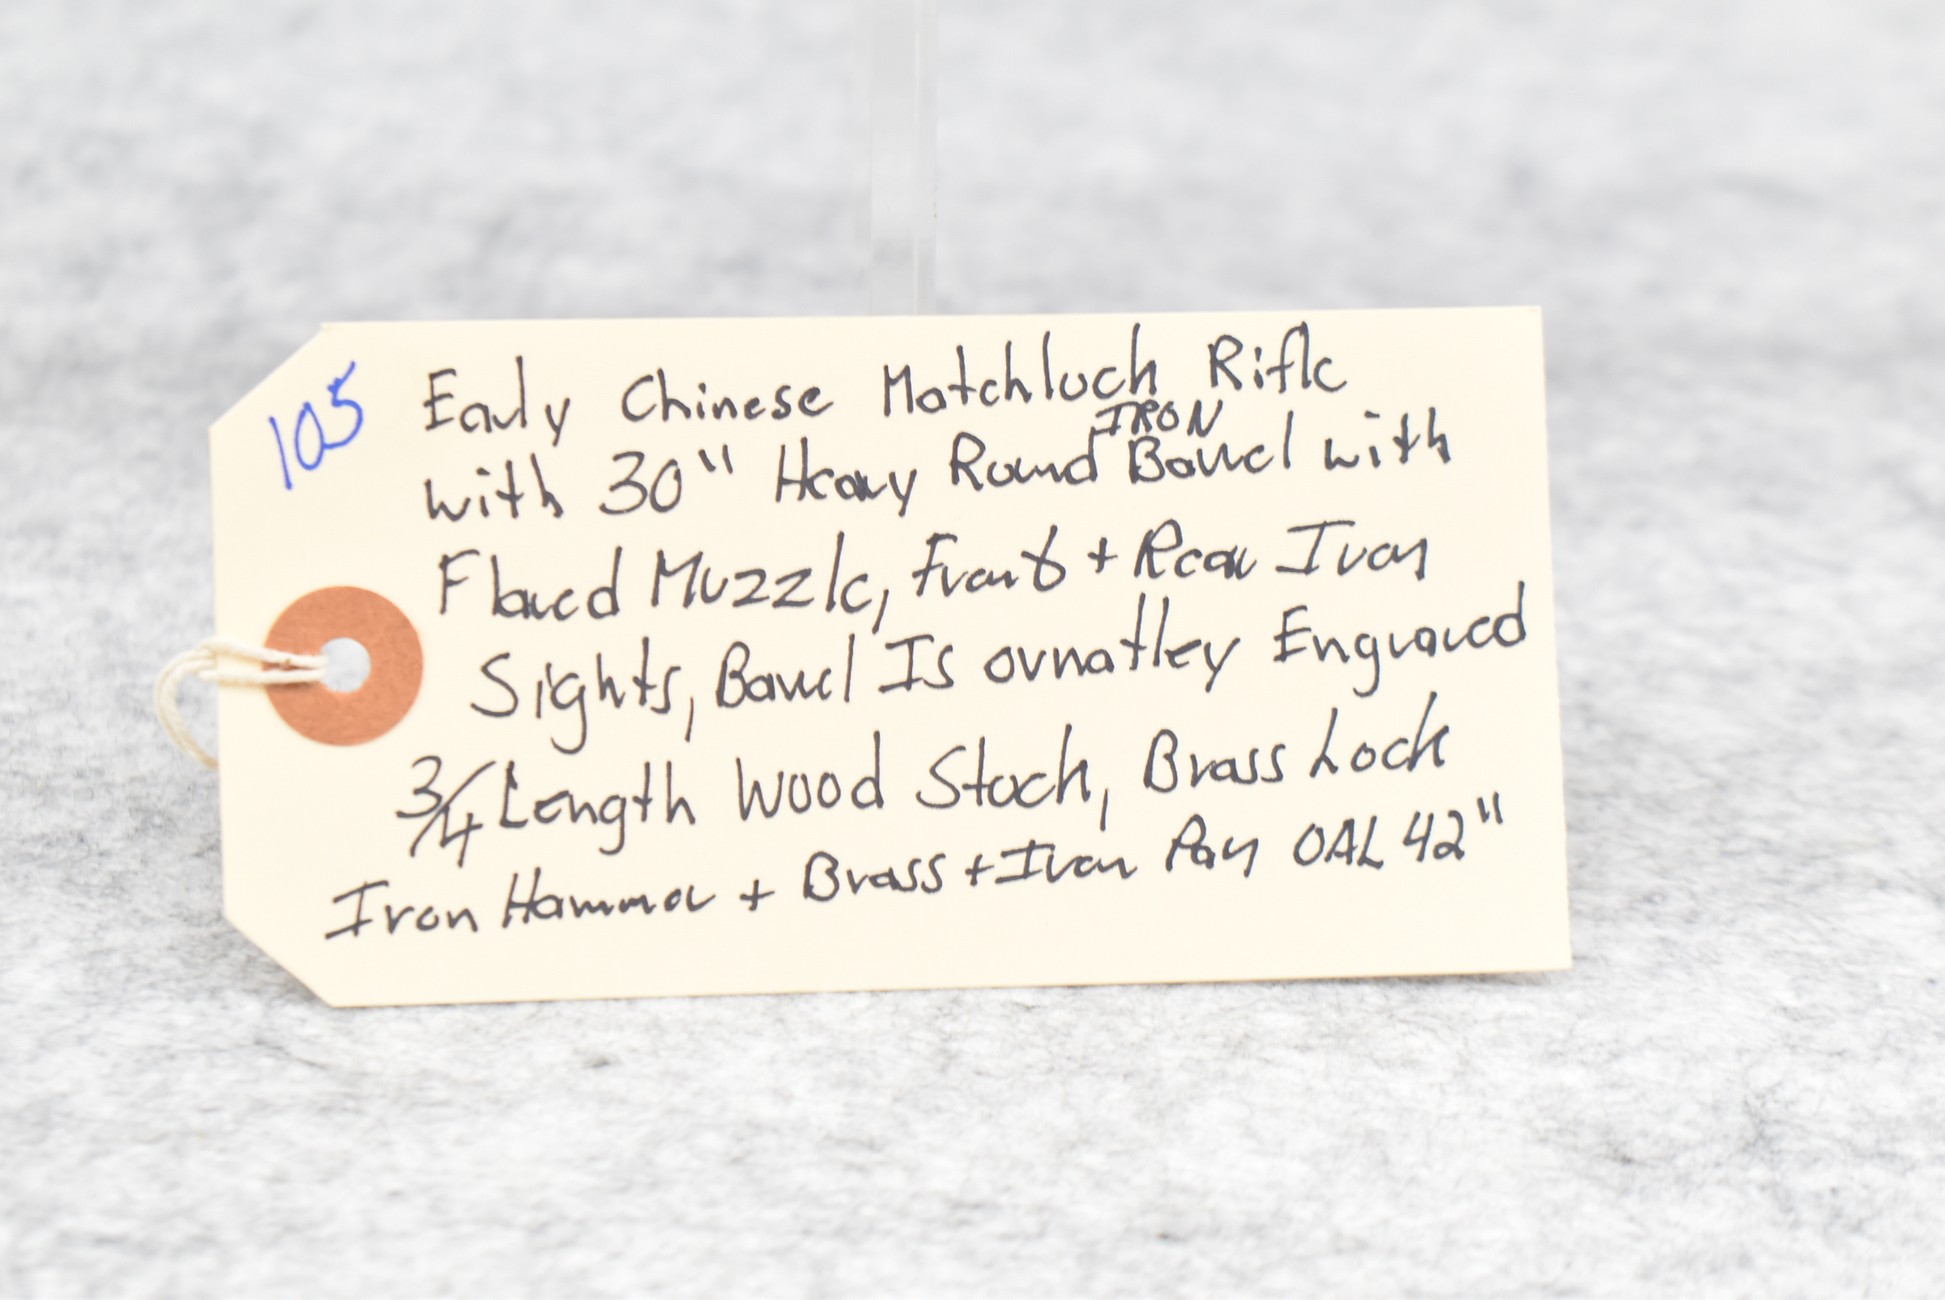 105
Early Chinese Matchlock Rifle
with 30" Heavy Round IRON Barrel with
Flared Muzzle, Front + Rear Iron
Sights, Barrel Is ornatley Engraved
3/4 Length Wood Stock, Brass Lock
Iron Hammer + Brass + Iron Pan OAL 42"